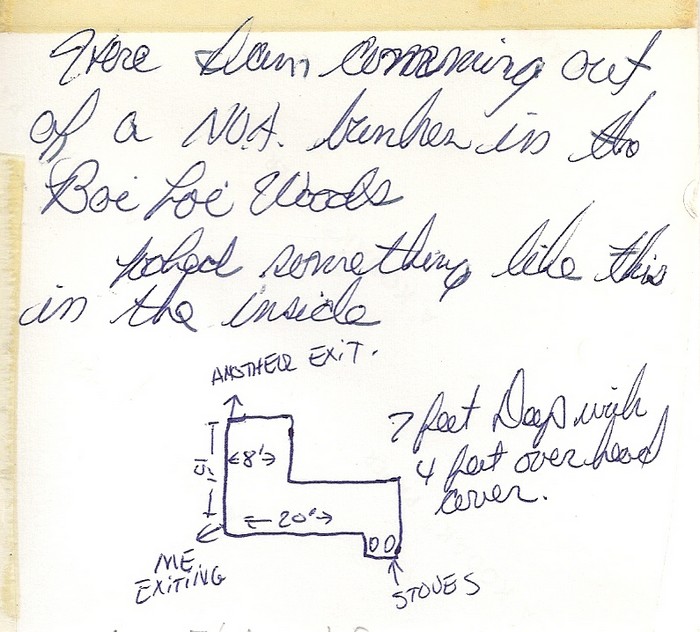 Here I am comming out
of a NVA. bunker in the
Boi Loi Woods
looked something like this
in the inside
ANOTHER EXIT.
7 feet Deep with
4 feet over head
cover.
15'
8'
20'
ME
EXITING
STOVES